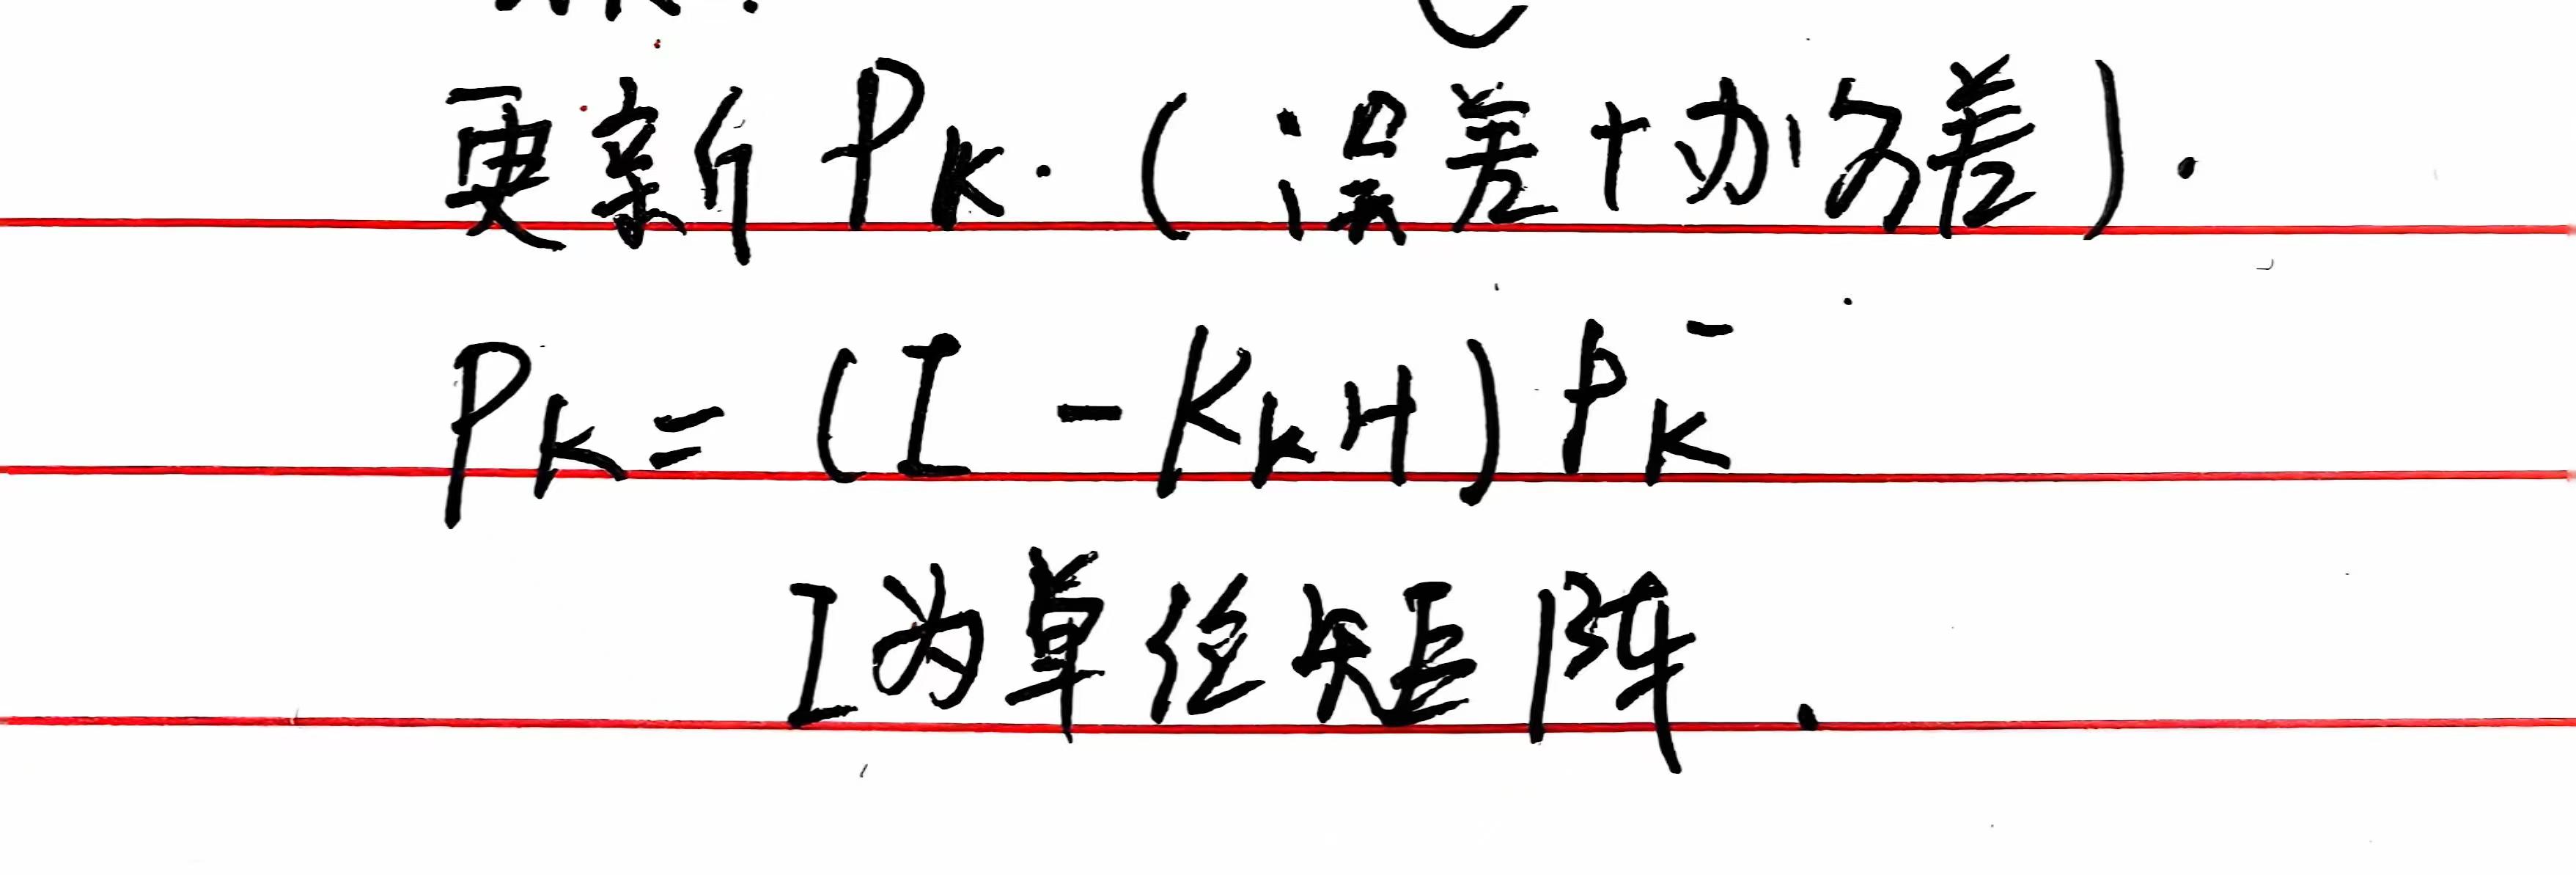 更新 Pk. (误差协方差).
Pk = (I - KkH) Pk⁻
I为单位矩阵.